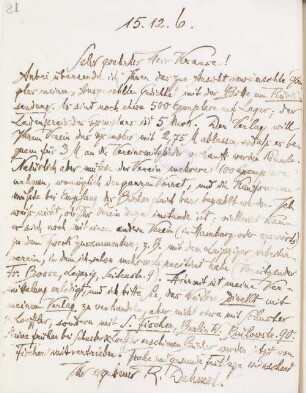 18
15.12.6.
Sehr geehrter Herr Krause!
Anbei übersende ich Ihnen das zur Ansicht gewünschte Exem-
plar meiner "Ausgewählten Gedichte" mit der Bitte um Rück-
sendung. Es sind noch etwa 500 Exemplare auf Lager; der
Ladenpreis des Exemplars ist 5 Mark. Der Verlag will
Ihrem Verein das Exemplar mit 2,75 M ablassen, sodaß es be-
quem für 3 M an die Vereinsmitglieder verkauft werden
Natürlich aber müßte der Verein mehrere 100 Exemplare
nehmen, womöglich den ganzen Vorrat, und die Kaufsumme
müßte bei Empfang der Bücher bezahlt werden. Ich
weiß nicht, ob Ihr Verein dazu imstande ist; vielleicht kann
er sich noch mit einem andern Verein (in Hamburg oder auswärts)
zu dem Zweck zusammentun, z. B. mit dem Leipziger Arbeiter-
verein, in dem ich schon mehrmals
Fr. Bosse, Leipzig, 9). Hiermit ist meine Ver-
mittelung erledigt, und ich bitte Sie, das Weitere direkt mit
meinem Verlag zu verhandeln, aber nicht etwa mit Schuster
& Loeffler, sondern mit S. Fischer, Berlin W. Bülowstr. 90.
meine früher bei Schuster & Loeffler erschienen Bücher werden jetzt von
Fischer mit vertrieben. Frohe und gesunde Festtage wünschend
Ihr ergebener R. Dehmel.